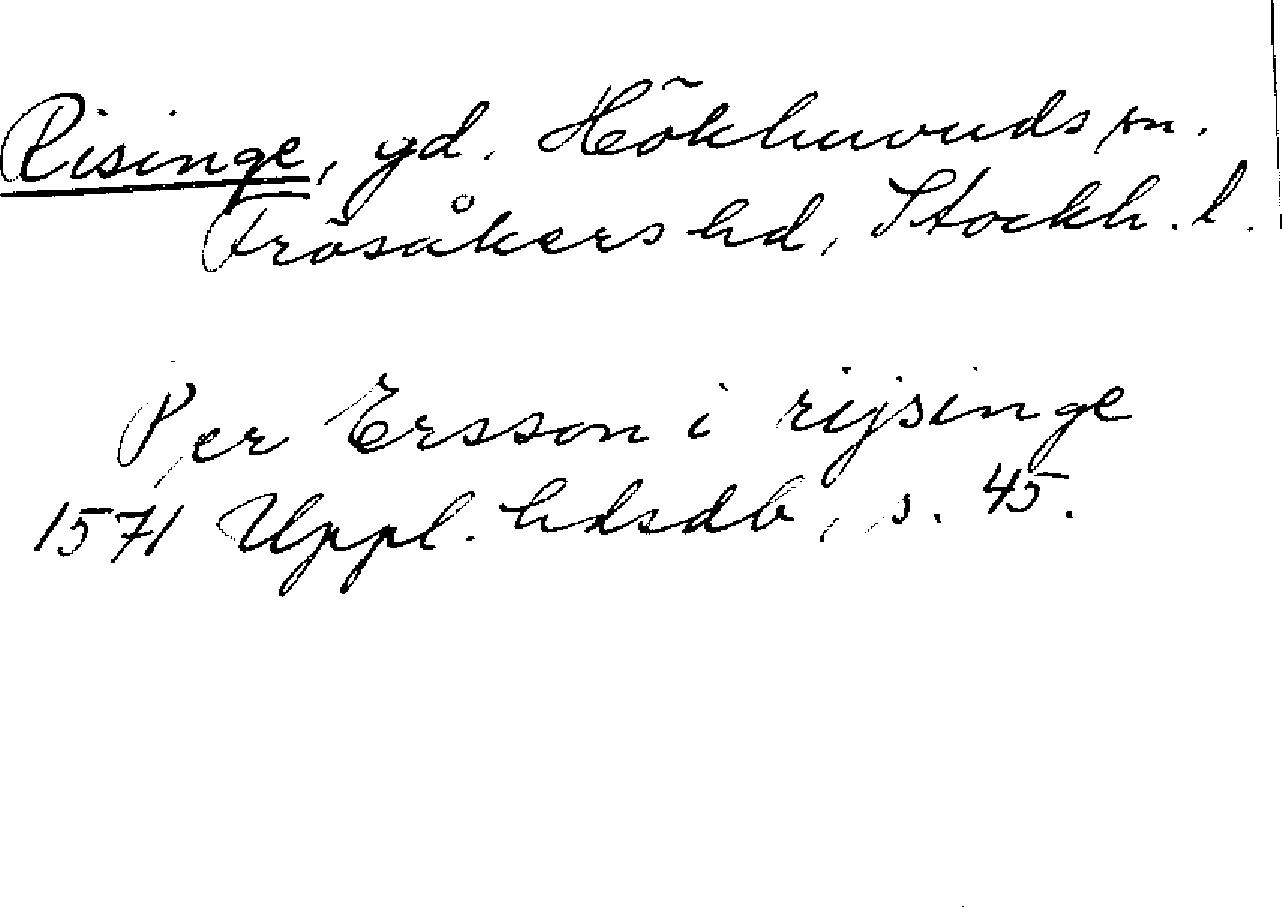 Risinge, gd. Hökhuvuds sn.
Frösåkers hd, Stockh. l.
Per Ersson i rijsinge
1571 Uppl. hdsdb, s. 45.